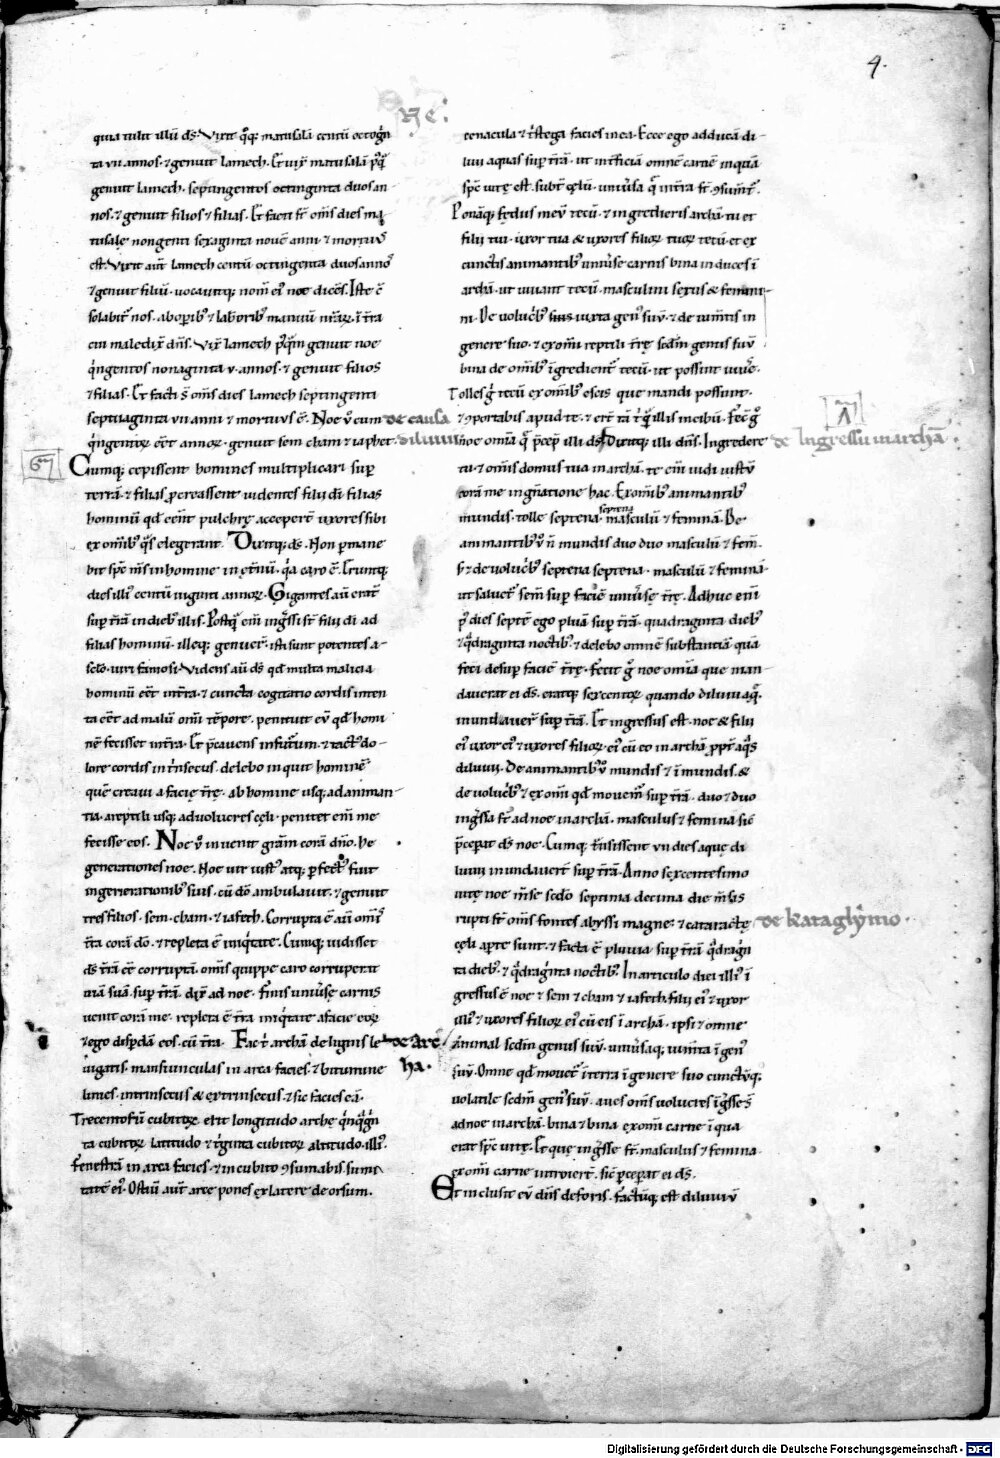 4.
NE:
quia tulit illū ds. Vixit qͦq; matusalā centū octogīn
ta vii annos. ⁊ genuit lamech. Et uix̄ matusalā pq̄
genuit lamech. septingentos octinginta duos an-
nos. ⁊ genuit filios ⁊ filias. Et facti st̄ om̄s dies ma
tusale nongenti sexaginta nouē anni ⁊ mortuꝰ
est. Vixit aut̄ lamech centū octinginta duos annoˢ
⁊ genuit filiū. uocauitq; nom̄ eiꝰ noe dicēs. Iste ē
solabit̄ nos. ab operibꝰ ⁊ laborib; manuū nr̄aꝝ. ī tr̄ra
cui maledix̄ dn̄s. Vix̄ lamech pꝰq̄m genuit noe
qͥngentos nonaginta v. annos. ⁊ genuit filios
⁊ filias. Et facti sˢ om̄s dies lamech septingenti
septuaginta vii anni ⁊ mortuus ē. Noe ꝟ cum
de causa
qͥngentoꝝ eēt annoꝝ. genuit sem cham ⁊ iaphet.
diluuii
Cumq; cepissent homines multiplicari suꝑ
terrā. ⁊ filias ꝓcreassent uidentes filii dī filias
hominū qd̄ eēnt pulchrę accepert̄ uxores sibi
ex om̄ibꝰ qͣs elegerant. Dixitq; ds. Non ꝑmane
bit spc̄ ms̄ in homine in ęt̄nū. qͥa caro ē. Eruntq;
dies illiꝰ centū uiginti annoꝝ. Gigantes aū erāt
suꝑ tr̄rā in diebꝰ illis. Postqͣ em̄ īgͣssi st̄ filii dī ad
filias hominū. illęq; genuer̄. isti sunt potentes a
sclō. uiri famosi. Videns aū ds qd̄ multa malicia
hominū eēt int̄ra. ⁊ cuncta cogitatio cordis inten
ta eēt ad malū om̄i tēpore. penituit eū qd̄ homi
nē fecisset int̄ra. Et p̄cauens in futurum. ⁊ tactꝰ do-
lore cordis intͥnsecus. delebo inquit hominē
quē creaui a facię tr̄rę. ab homine usq; ad animan-
tia. a reptili usq; ad uolucres cęli. penitet em̄ me
fecisse eos. Noe ꝟ inuenit grām corā dn̄o. He
generationes noe. Noe uir iustꝰ atq; ꝑfectꝰ fuit
in generationibꝰ suis. cū dō ambulauit. ⁊ genuit
tres filios. sem. cham. ⁊ iafeth. Corrupta ē aū om̄s
tr̄ra corā dō. ⁊ repleta ē iniqͥtate. Cumq; uidisset
ds tr̄rā eē corruptā. om̄is quippe caro corruperat
uiā suā. suꝑ tr̄rā. dix̄ ad noe. finis uniūse carnis
uenit corā me. repleta ē tr̄ra iniqͥtate a facie eoꝝ
⁊ ego disꝑdā eos. cū tr̄ra. Fac tͥ archā de lignis le
de Arc
uigatis. mansiunculas in arca facies. ⁊ bitumine
ha.
linies. intrinsecus & extrinsecus. ⁊ sic facies eā.
Trecentoꝝ cubitoꝝ erit longitudo arche. qͥnqͣgīn
ta cubitoꝝ latitudo ⁊ tͥginta cubitoꝝ altitudo. illiꝰ.
Fenestrā in arca facies. ⁊ in cubito ꝯsumabis. sumi
tatē eiꝰ. Ostiū aut̄ arce pones ex latere deorsum.
cenacula ⁊ tͥstega facies in ea. Ecce ego adducā di-
luii aquas suꝑ tr̄rā. ut int̄ficiā omnē carnē in quā
spc̄ uitę est. subt̄ cęlū. uniūsa q̄ int̄ra st̄. ꝯsum̄t̄.
Ponāq; fędus meū tecū. ⁊ ingredieris archā. tu et
filii tui. uxor tua & uxores filioꝝ tuoꝝ tecū. et ex
cunctis animantibꝰ uniūse carnis bina induces ī
archā. ut uiuant tecū. masculini sexus & femini-
ni. De uolucͥbꝰ suis iuxta genꝰ suū. ⁊ de iumētis in
genere suo. ⁊ ex om̄i reptili tr̄rę scdm̄ genus suū
bina de om̄ibꝰ īgredient̄ tecū. ut possint uiuē.
Tolles gͦ tecū ex om̄ibꝰ escis que mandi possunt.
⁊ ꝯportabis apud te. ⁊ erūt tā tͥ qͣ illis in cibū. Fec̄ gͦ
A
noe om̄ia q̄ p̄cep̄ illi ds. Dixitq; illi dn̄s. Ingredere
de Ingressu in archā.
tu. ⁊ omnis domus tua in archā. te em̄ uidi iustū
corā me in gn̄atione hac. Ex om̄ibꝰ animantibꝰ
mundis. tolle septena septena masculū ⁊ feminā. De
animantibꝰ ꝟ n̄ mundis duo duo masculū ⁊ fem̄.
s; ⁊ de uolucͥbꝰ septena septena. masculū ⁊ feminā
ut saluet̄ sem̄ suꝑ faciē uniūsę tr̄rę. Adhuc em̄
pꝰ dies septē ego pluā suꝑ tr̄rā. quadraginta diebꝰ
⁊ qͣdraginta noctibꝰ. ⁊ delebo omnē substantiā quā
feci desuꝑ faciē tr̄rę. Fecit gͦ noe om̄ia que man-
dauerat ei ds. eratq; sexcentoꝝ quando diluuii aqͣ.
inundauer̄ suꝑ tr̄rā. Et ingressus est. noe & filii
eiꝰ uxor eiꝰ ⁊ uxores filioꝝ. eiꝰ cū eo in archā ꝓpt̄ aqͣs
diluuii. De animantibꝰ ꝟ mundis ⁊ īmundis. &
de uolucͥbꝰ ⁊ ex om̄i qd̄ mouet̄ suꝑ tr̄rā. duo ⁊ duo
ingͣssa st̄ ad noe in archā. masculus ⁊ femina sic̄
p̄ceꝑat ds noe. Cumq; tͣnsissent vii dies aquę di
luuii inundauert̄ suꝑ tr̄rā. Anno sexcentesimo
uitę noe m̄se scdō septima decima die m̄sis
rupti st̄ om̄s fontes abyssi magne. ⁊ cataractę
de kataglysmo.
cęli aꝑte sunt. ⁊ facta ē pluuia suꝑ tr̄rā qͣdragīn
ta diebꝰ. ⁊ qͣdraginta noctibꝰ. In articulo diei illiꝰ ī
gressus ē noe ⁊ sem ⁊ cham ⁊ iafeth. filii eiꝰ ⁊ uxor
illiꝰ ⁊ uxores filioꝝ eiꝰ cū eis ī archā. ipsi ⁊ omne
animal scdm̄ genus suū. uniūsaq; iumēta ī genꝰ
suū. Omne qd̄ mouet̄ ī terra ī genere suo cunctūq;
uolatile scdm̄ genꝰ suū. aues om̄s uolucres īgͣsse sˢ
ad noe in archā. bina ⁊ bina ex om̄i carne ī qua
erat spc̄ uitę. Et quę ingͣsse st̄. masculus ⁊ femina.
ex om̄i carne introiert̄. sic̄ p̄ceꝑat ei ds.
Et inclusit eū dn̄s deforis. factūq; est diluuiū
Digitalisierung gefördert durch die Deutsche Forschungsgemeinschaft - DFG